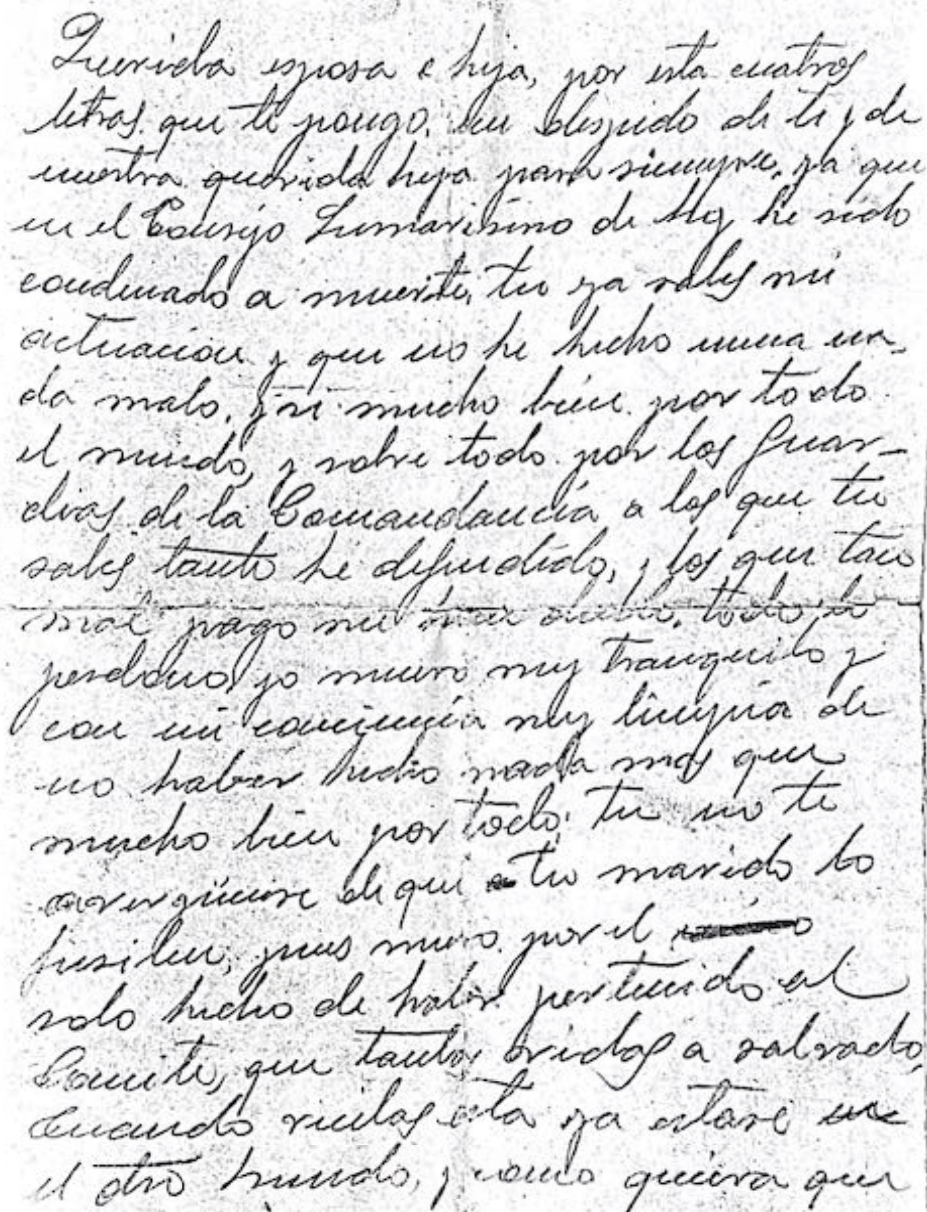 Querida esposa e hija, por esta cuatros
letras que te pongo, me despido de ti y de
nuestra querida hija para siempre, ya que
en el Consejo Sumarisimo de hoy he sido
condenado a muerte, tu ya sabes mi
actuacion y que no he hecho nunca na-
da malo, y si mucho bien por todo
el mundo, y sobre todo por los Guar-
dias de la Comandancia a los que tu
sabes tanto he defendido, y los que tan
mal pago me han dado, todo lo
perdono, yo muero muy tranquilo y
con mi conciencia muy limpia de
no haber hecho nada mas que
mucho bien por todo; tu no te
avergüence de que a tu marido lo
fusilen, pues muero por el
solo hecho de haber pertenecido al
Comite, que tantas vidas a salvado,
Cuando recibas esta ya estare en
el otro mundo, y como quiera que